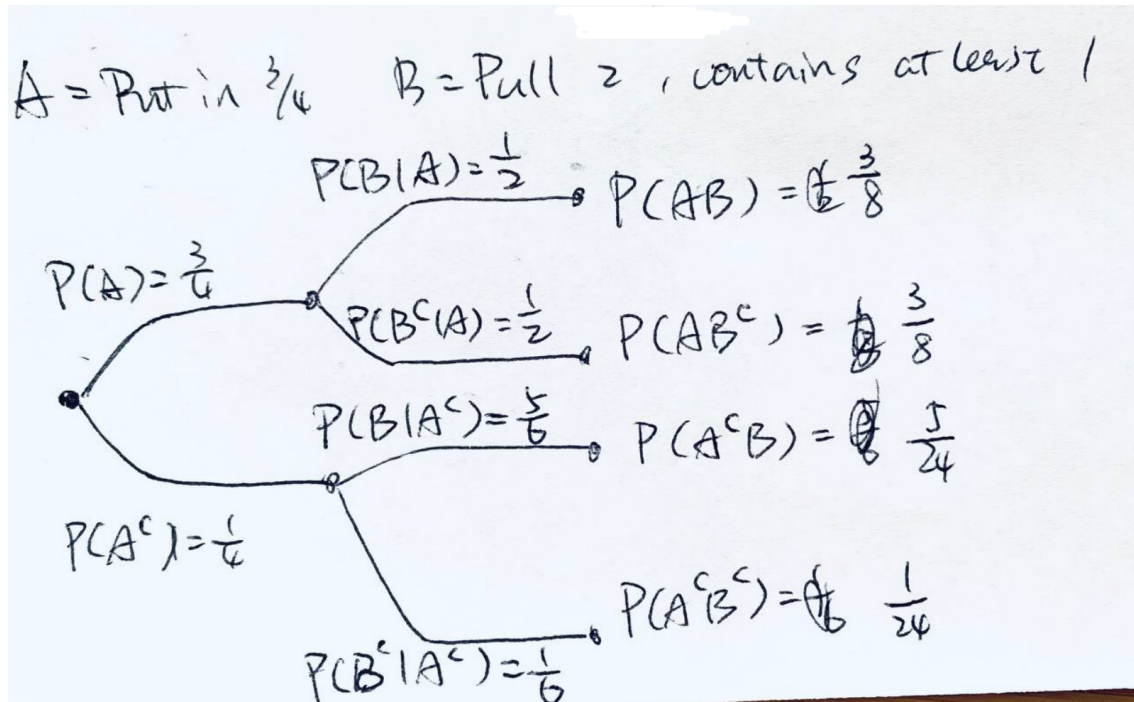 A = Put in 3/4 B = Pull 2, contains at least 1
P(B|A)=1/2
P(AB) = 3/8
P(A)=3/4
P(Bᶜ|A)=1/2
P(ABᶜ) = 3/8
P(B|Aᶜ)=5/6
P(AᶜB) = 5/24
P(Aᶜ)=1/4
P(AᶜBᶜ)= 1/24
P(Bᶜ|Aᶜ)=1/6